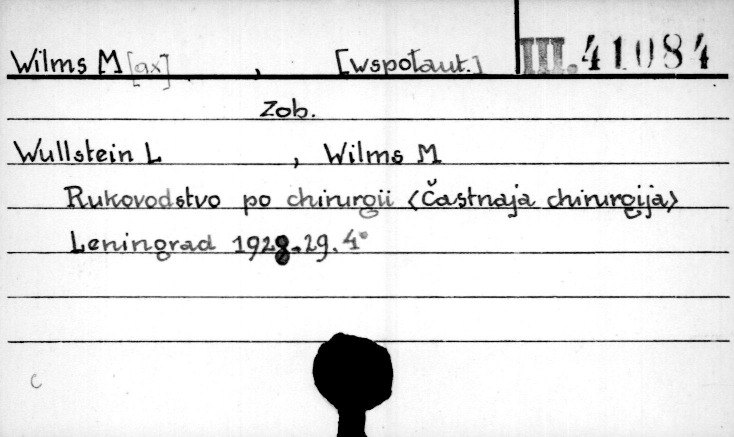 Wilms M[ax] , [wspołaut.] III.41084
Zob.
Wullstein L , Wilms M
Rukovodstvo po chirurgii <Častnaja chirurgija>
Leningrad 1928-29. 4°
c